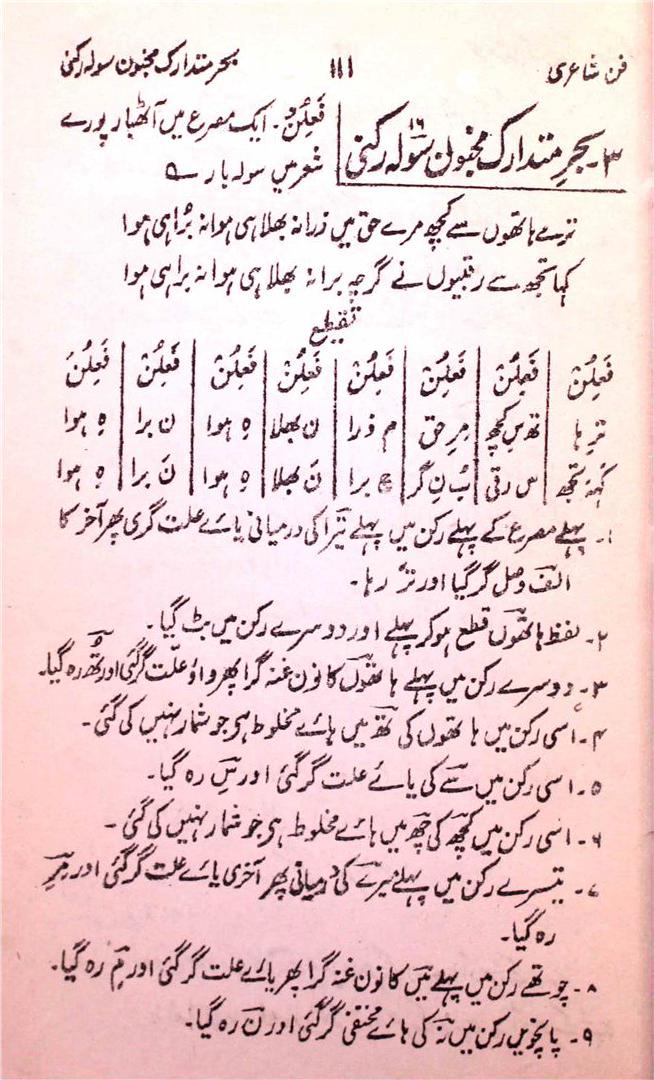 فن شاعری ۱۱۱ بحر متدارک مخبون سولہ رکنی
۳۔ بحرِ متدارک مخبون سولہ ۱۶ رکنی
فَعِلُنْ۔ ایک مصرع میں آٹھ بار پورے
شعر میں سولہ بار ؎
ترے ہاتھوں سے کچھ مرے حق میں ذرا نہ بھلا ہی ہوا نہ بُرا ہی ہوا
کہا تجھ سے رقیبوں نے گرچہ برا نہ بھلا ہی ہوا نہ برا ہی ہوا
تقطیع
فَعِلُنْ | فَعِلُنْ | فَعِلُنْ | فَعِلُنْ | فَعِلُنْ | فَعِلُنْ | فَعِلُنْ | فَعِلُنْ
تَرِ ہا | تھ سِ کچھ | مِرِ حق | م ذرا | ن بھلا | ہِ ہوا | ن برا | ہِ ہوا
کہَہ تجھ | س رقی | بُ نِ گر | چ برا | نَ بھلا | ہِ ہوا | نَ برا | ہِ ہوا
۱۔ پہلے مصرع کے پہلے رکن میں پہلے تیرا کی درمیانی یائے علت گری پھر آخر کا
الف وصل گر گیا اور تر رہا۔
۲۔ لفظ ہاتھوں قطع ہو کر پہلے اور دوسرے رکن میں بٹ گیا۔
۳۔ دوسرے رکن میں پہلے ہاتھوں کا نون غنہ گرا پھر واؤ علّت گر گئی اور تھ رہ گیا۔
۴۔ اسی رکن میں ہاتھوں کی تھ میں ہائے مخلوط ہی جو شمار نہیں کی گئی۔
۵۔ اسی رکن میں سے کی یائے علت گر گئی اور سِ رہ گیا۔
۶۔ اسی رکن میں کچھ کی چھ میں ہائے مخلوط ہی جو شمار نہیں کی گئی۔
۷۔ تیسرے رکن میں پہلے میرے کی درمیانی پھر آخری یائے علت گر گئی اور مِرِ
رہ گیا۔
۸۔ چوتھے رکن میں پہلے میں کا نون غنہ گرا پھر یائے علت گر گئی اور مِ رہ گیا۔
۹۔ پانچویں رکن میں نہ کی ہائے مختفی گر گئی اور نَ رہ گیا۔